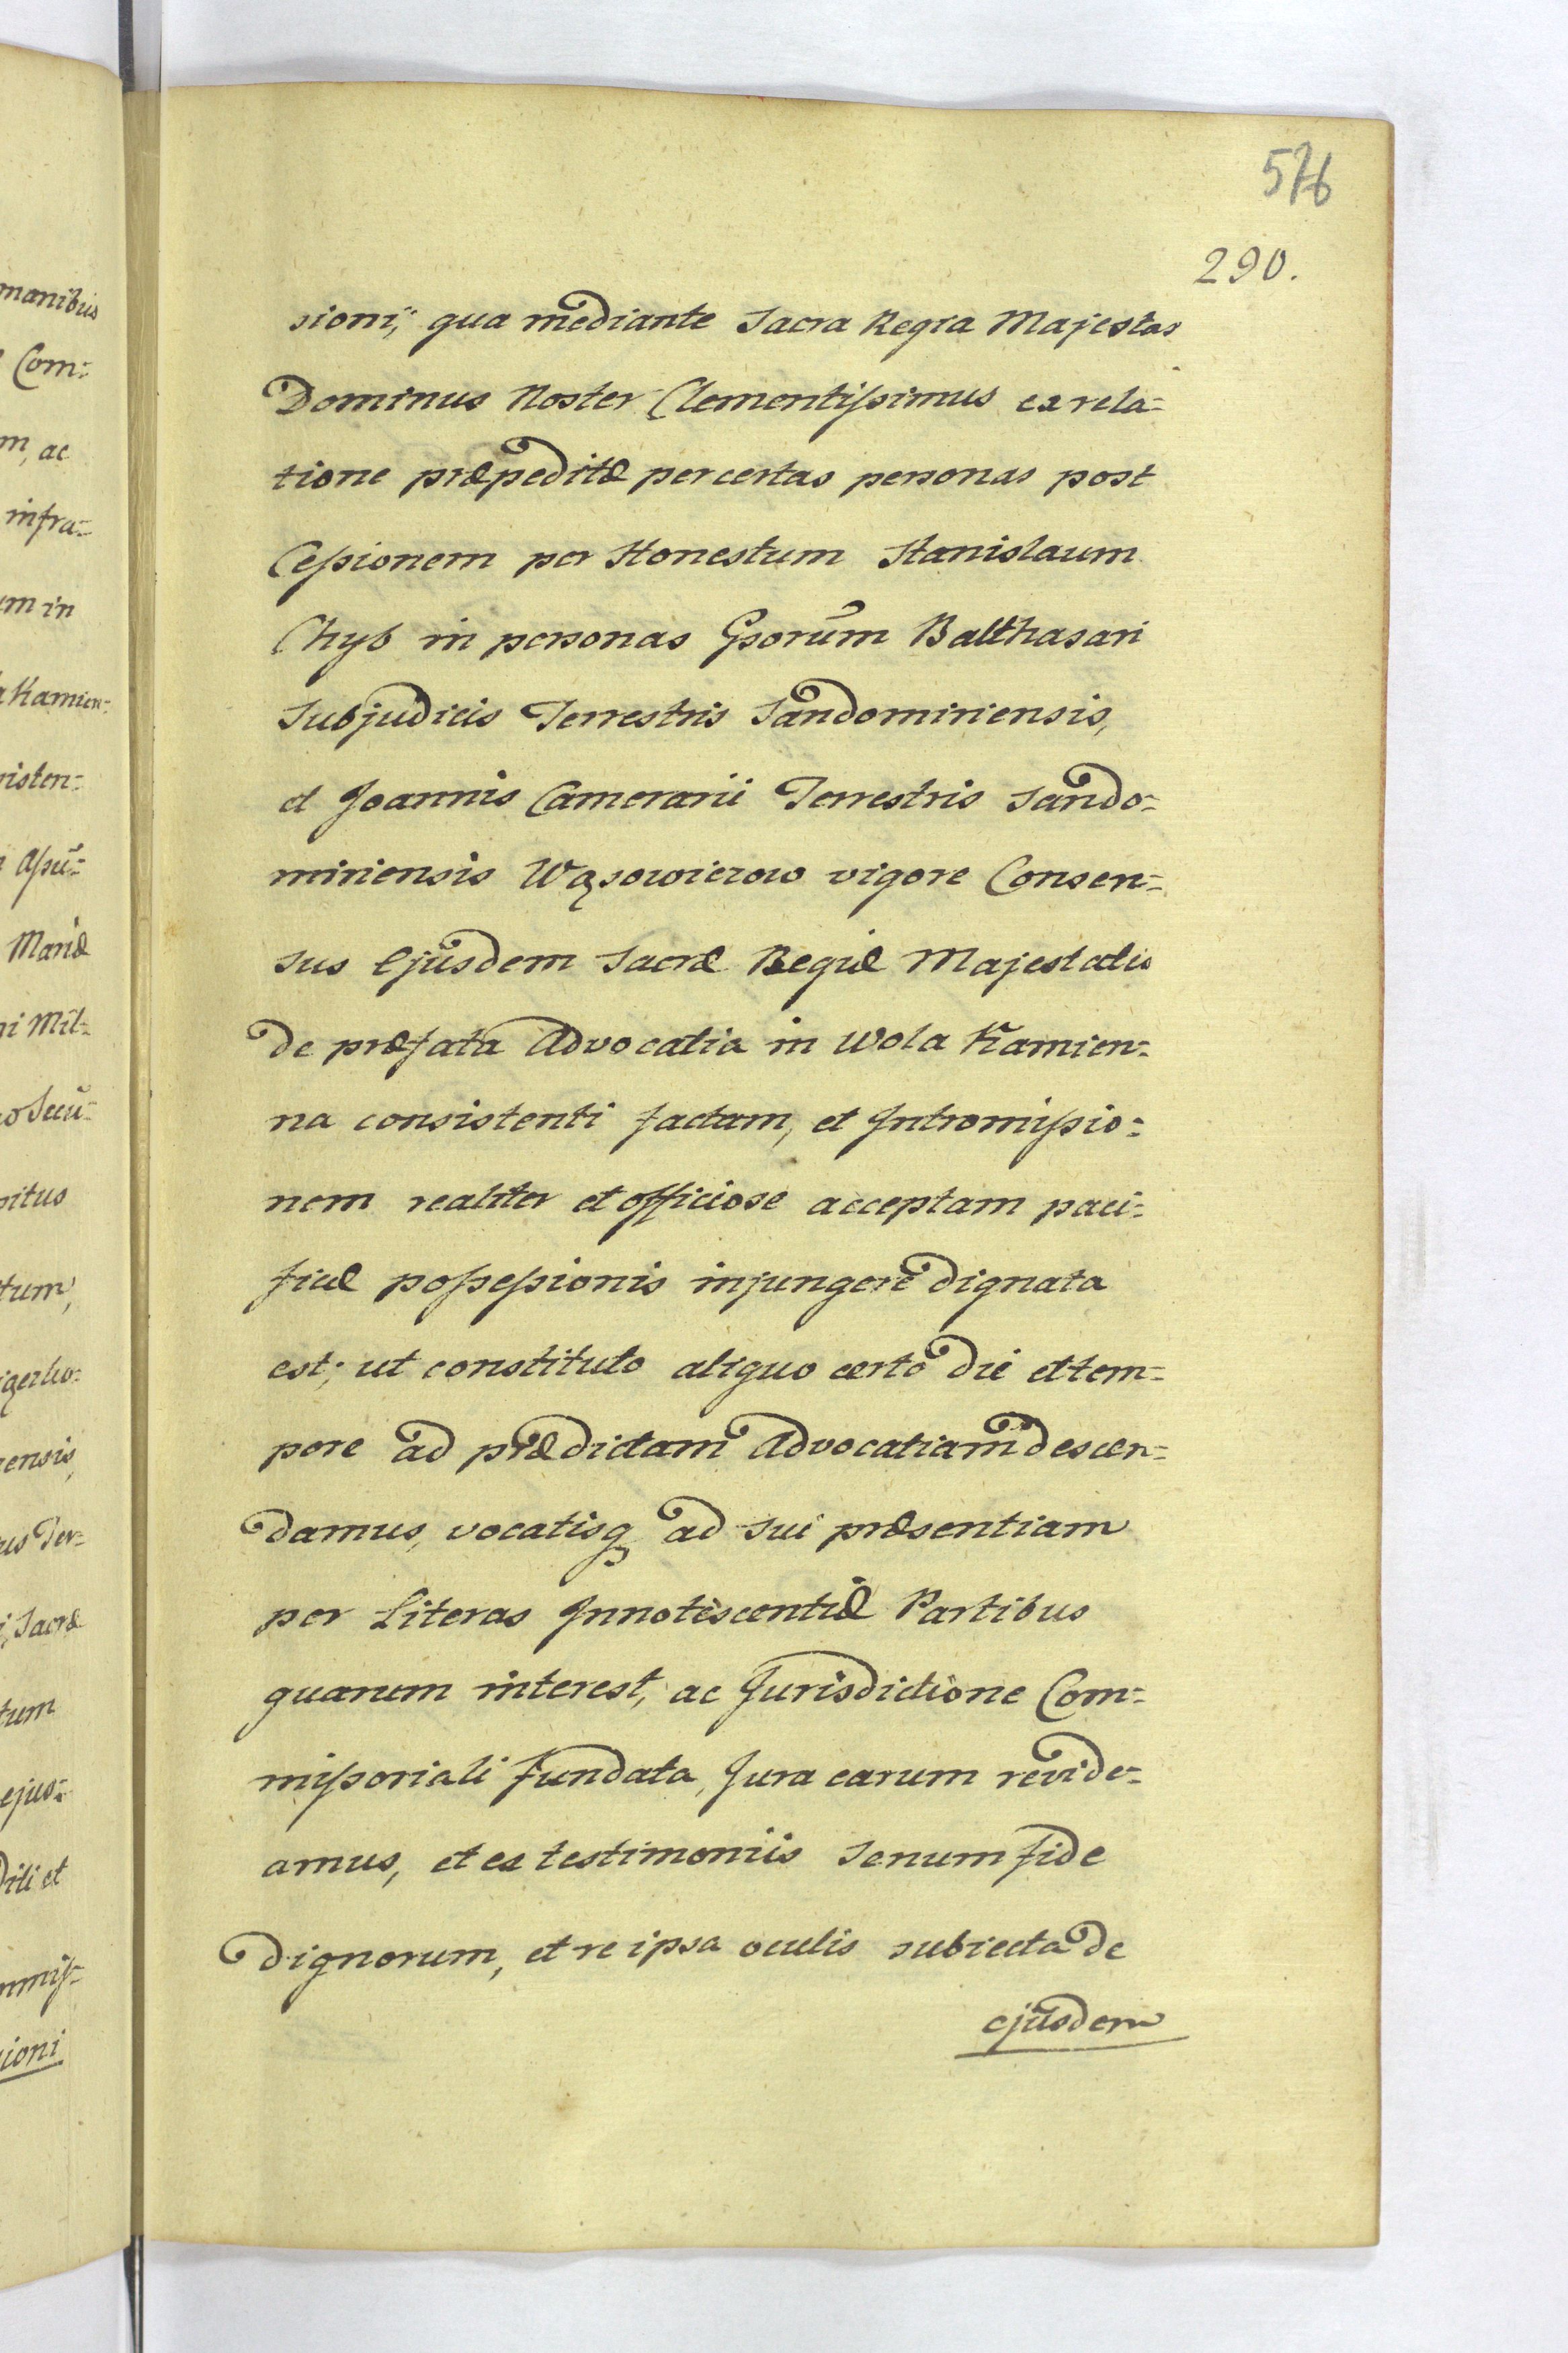 576
290.
sioni; qua mediante Sacra Regia Majestas
Dominus Noster Clementissimus ex rela=
tione præpeditæ per certas personas post
Cessionem per Honestum Stanislaum
Chyb in personas Gsorum Balthasari
Subjudicis Terrestris Sandomiriensis,
et Joannis Camerarii Terrestris Sando=
miriensis Wąsowiczow vigore Consen=
sus Ejusdem Sacræ Regiæ Majestatis
de præfata Advocatia in Wola Kamien=
na consistenti factam, et Intromissio=
nem realiter et officiose acceptam paci=
ficæ possessionis injungere dignata
est; ut constituto aliquo certo die et tem=
pore ad prædictam Advocatiam descen=
damus, vocatisq ad sui præsentiam
per Literas Innotescentiæ Partibus
quarum interest, ac Jurisdictione Com=
missoriali fundata, Jura earum revide=
amus, et ex testimoniis senum fide
dignorum, et re ipsa oculis subiecta de
ejusdem
manibus
Com=
m, ac
infra=
um in
Kamien=
sisten=
Assu=
Mariæ
ni Mil=
pitus
tum,
ensis,
us Ter=
i, Sacræ
tum
ejus=
diti et
mmis=
sioni